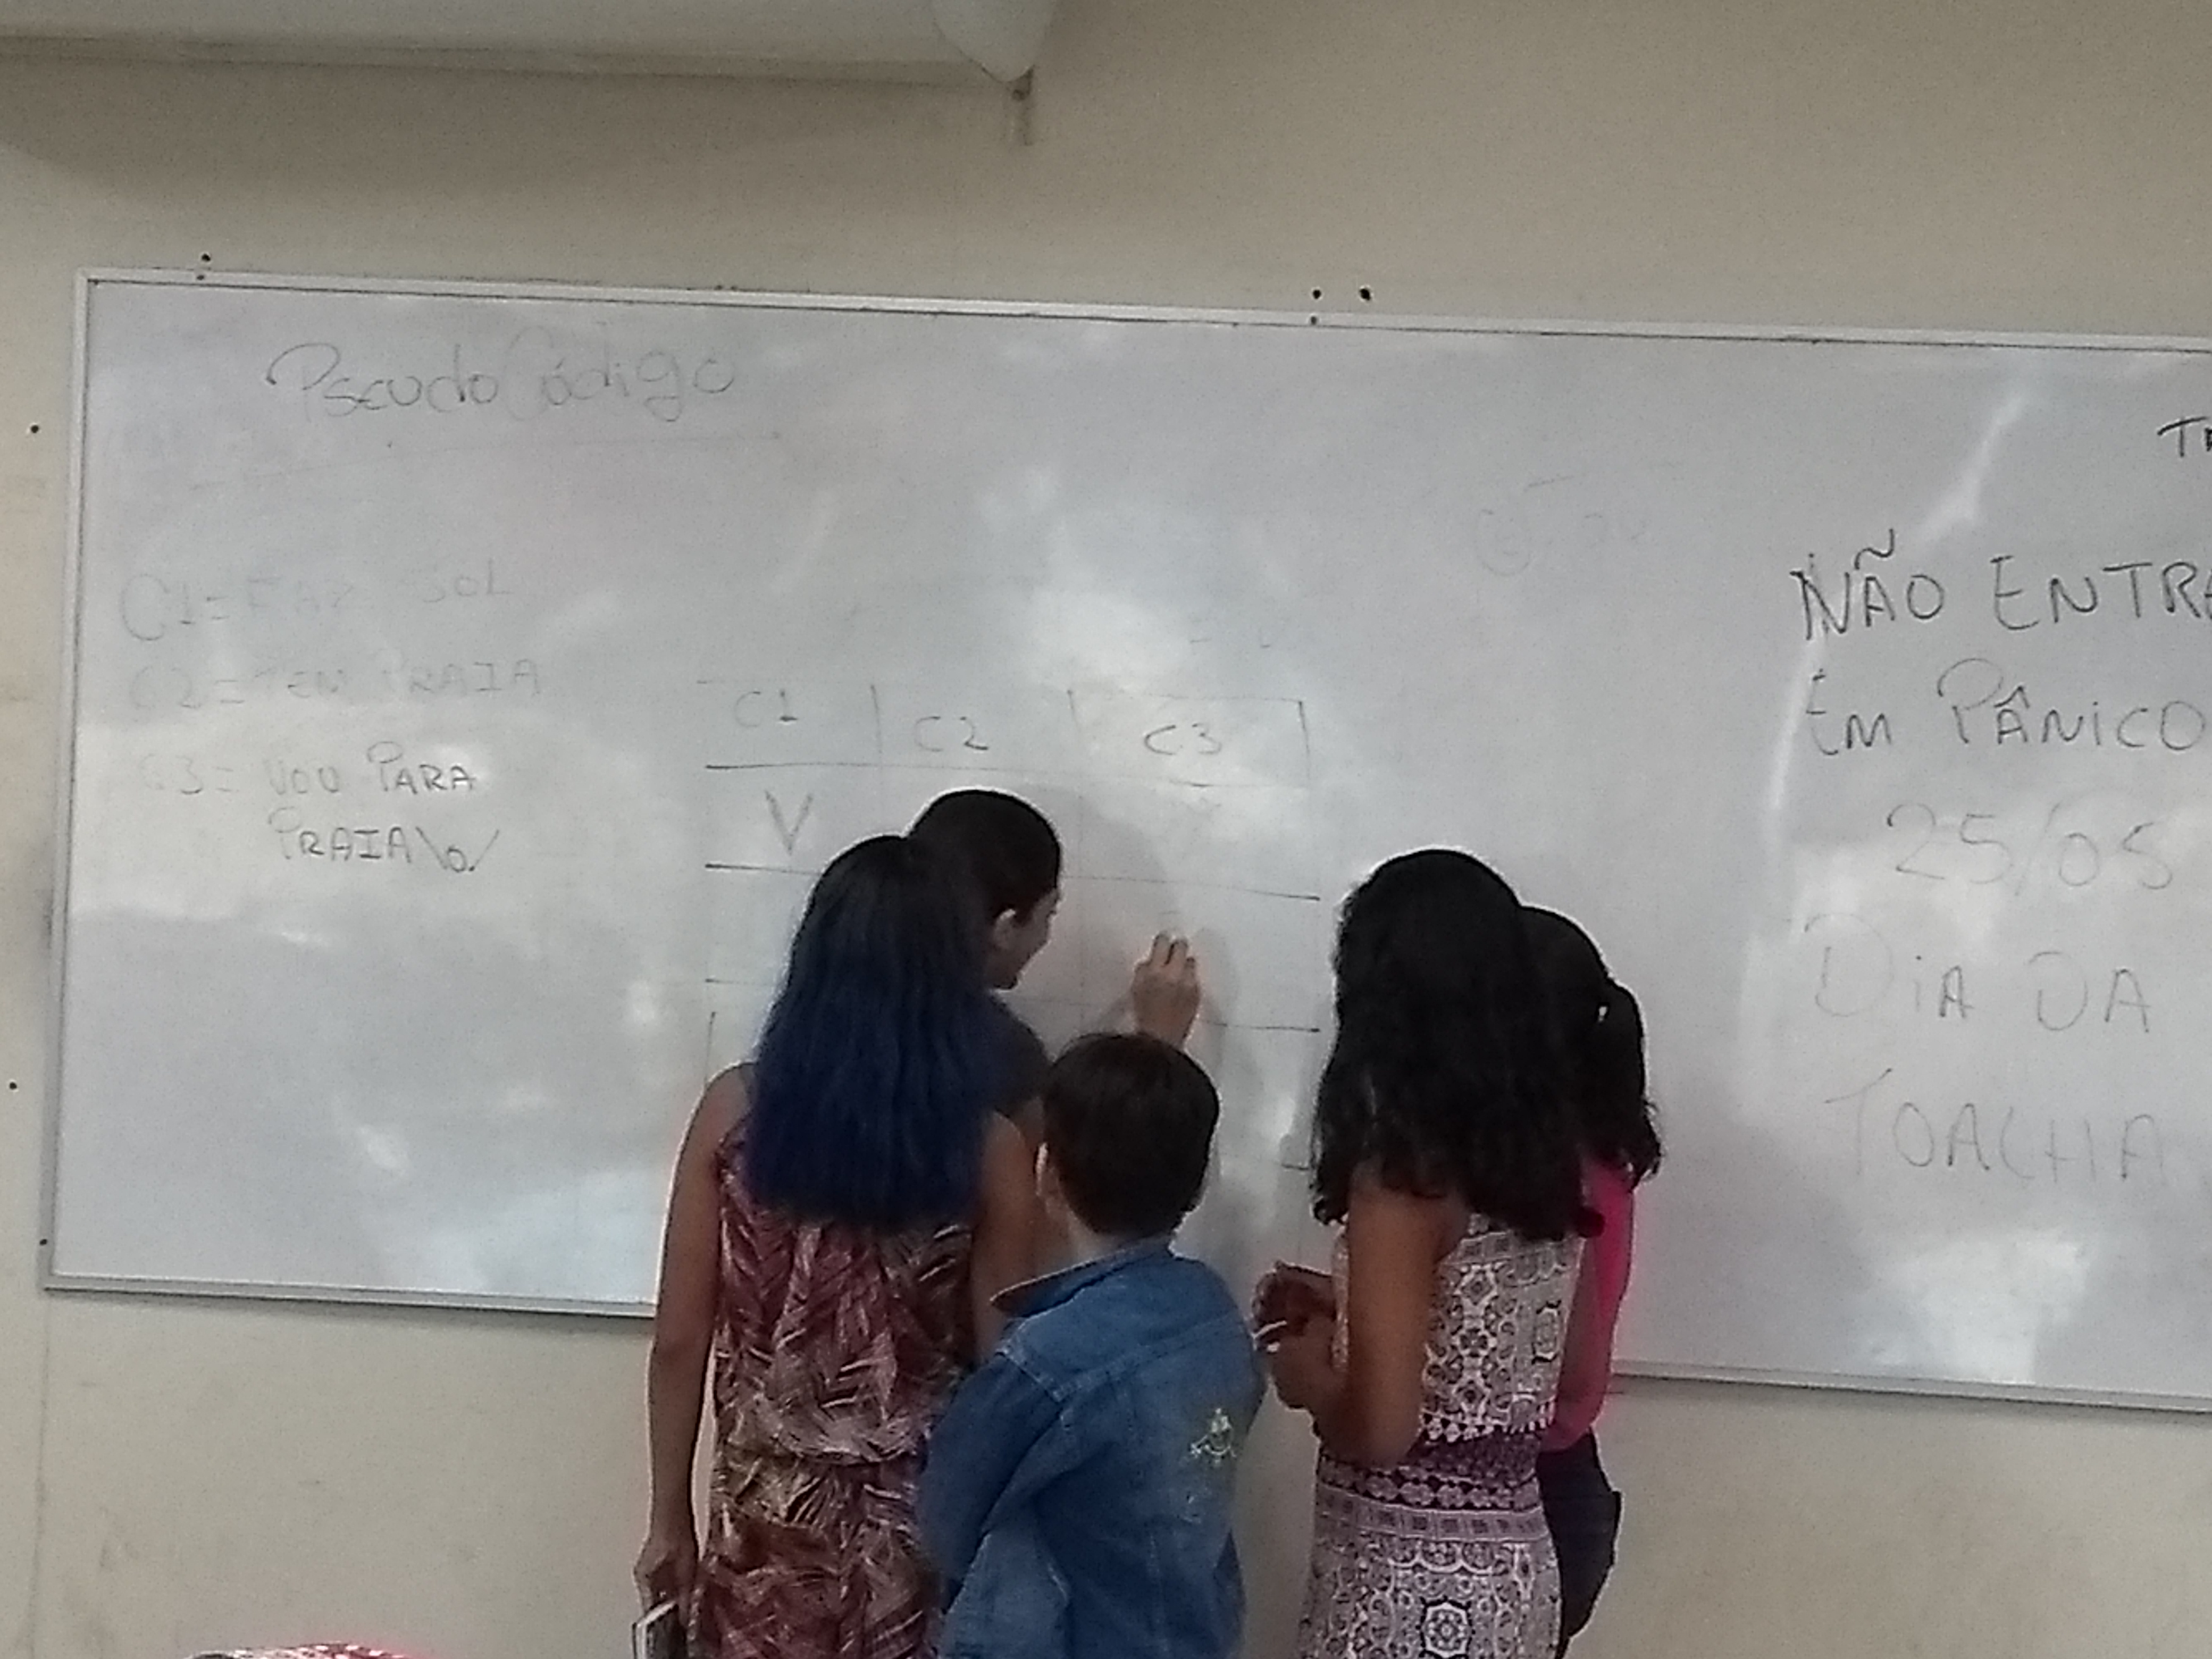 PseudoCódigo
C1= FAZ SOL
C2= TEM PRAIA
C3= VOU PARA
PRAIA \o/
C1 C2 C3
V
NÃO ENTRA
EM PÂNICO
25/05
DIA DA
TOALHA